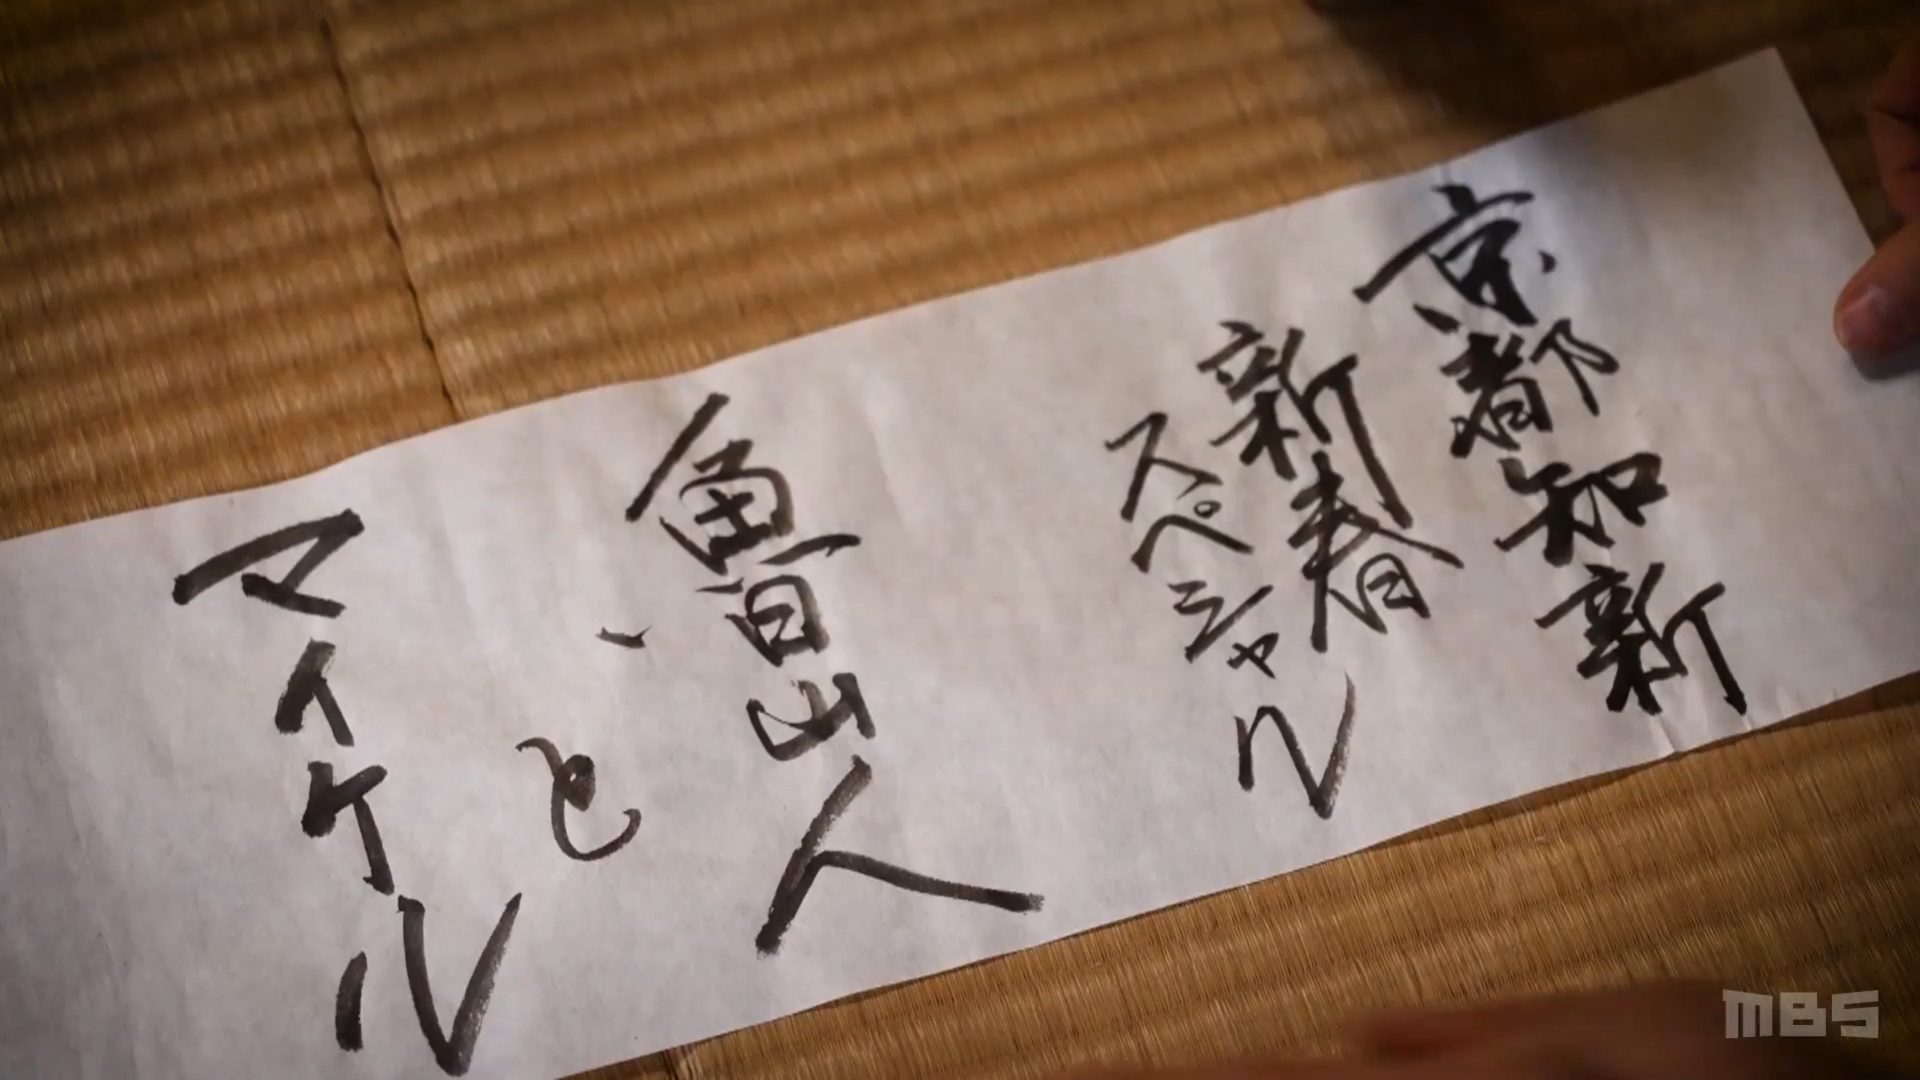 京都知新
新春
スペシャル
魯山人
、と
マイケル
MBS